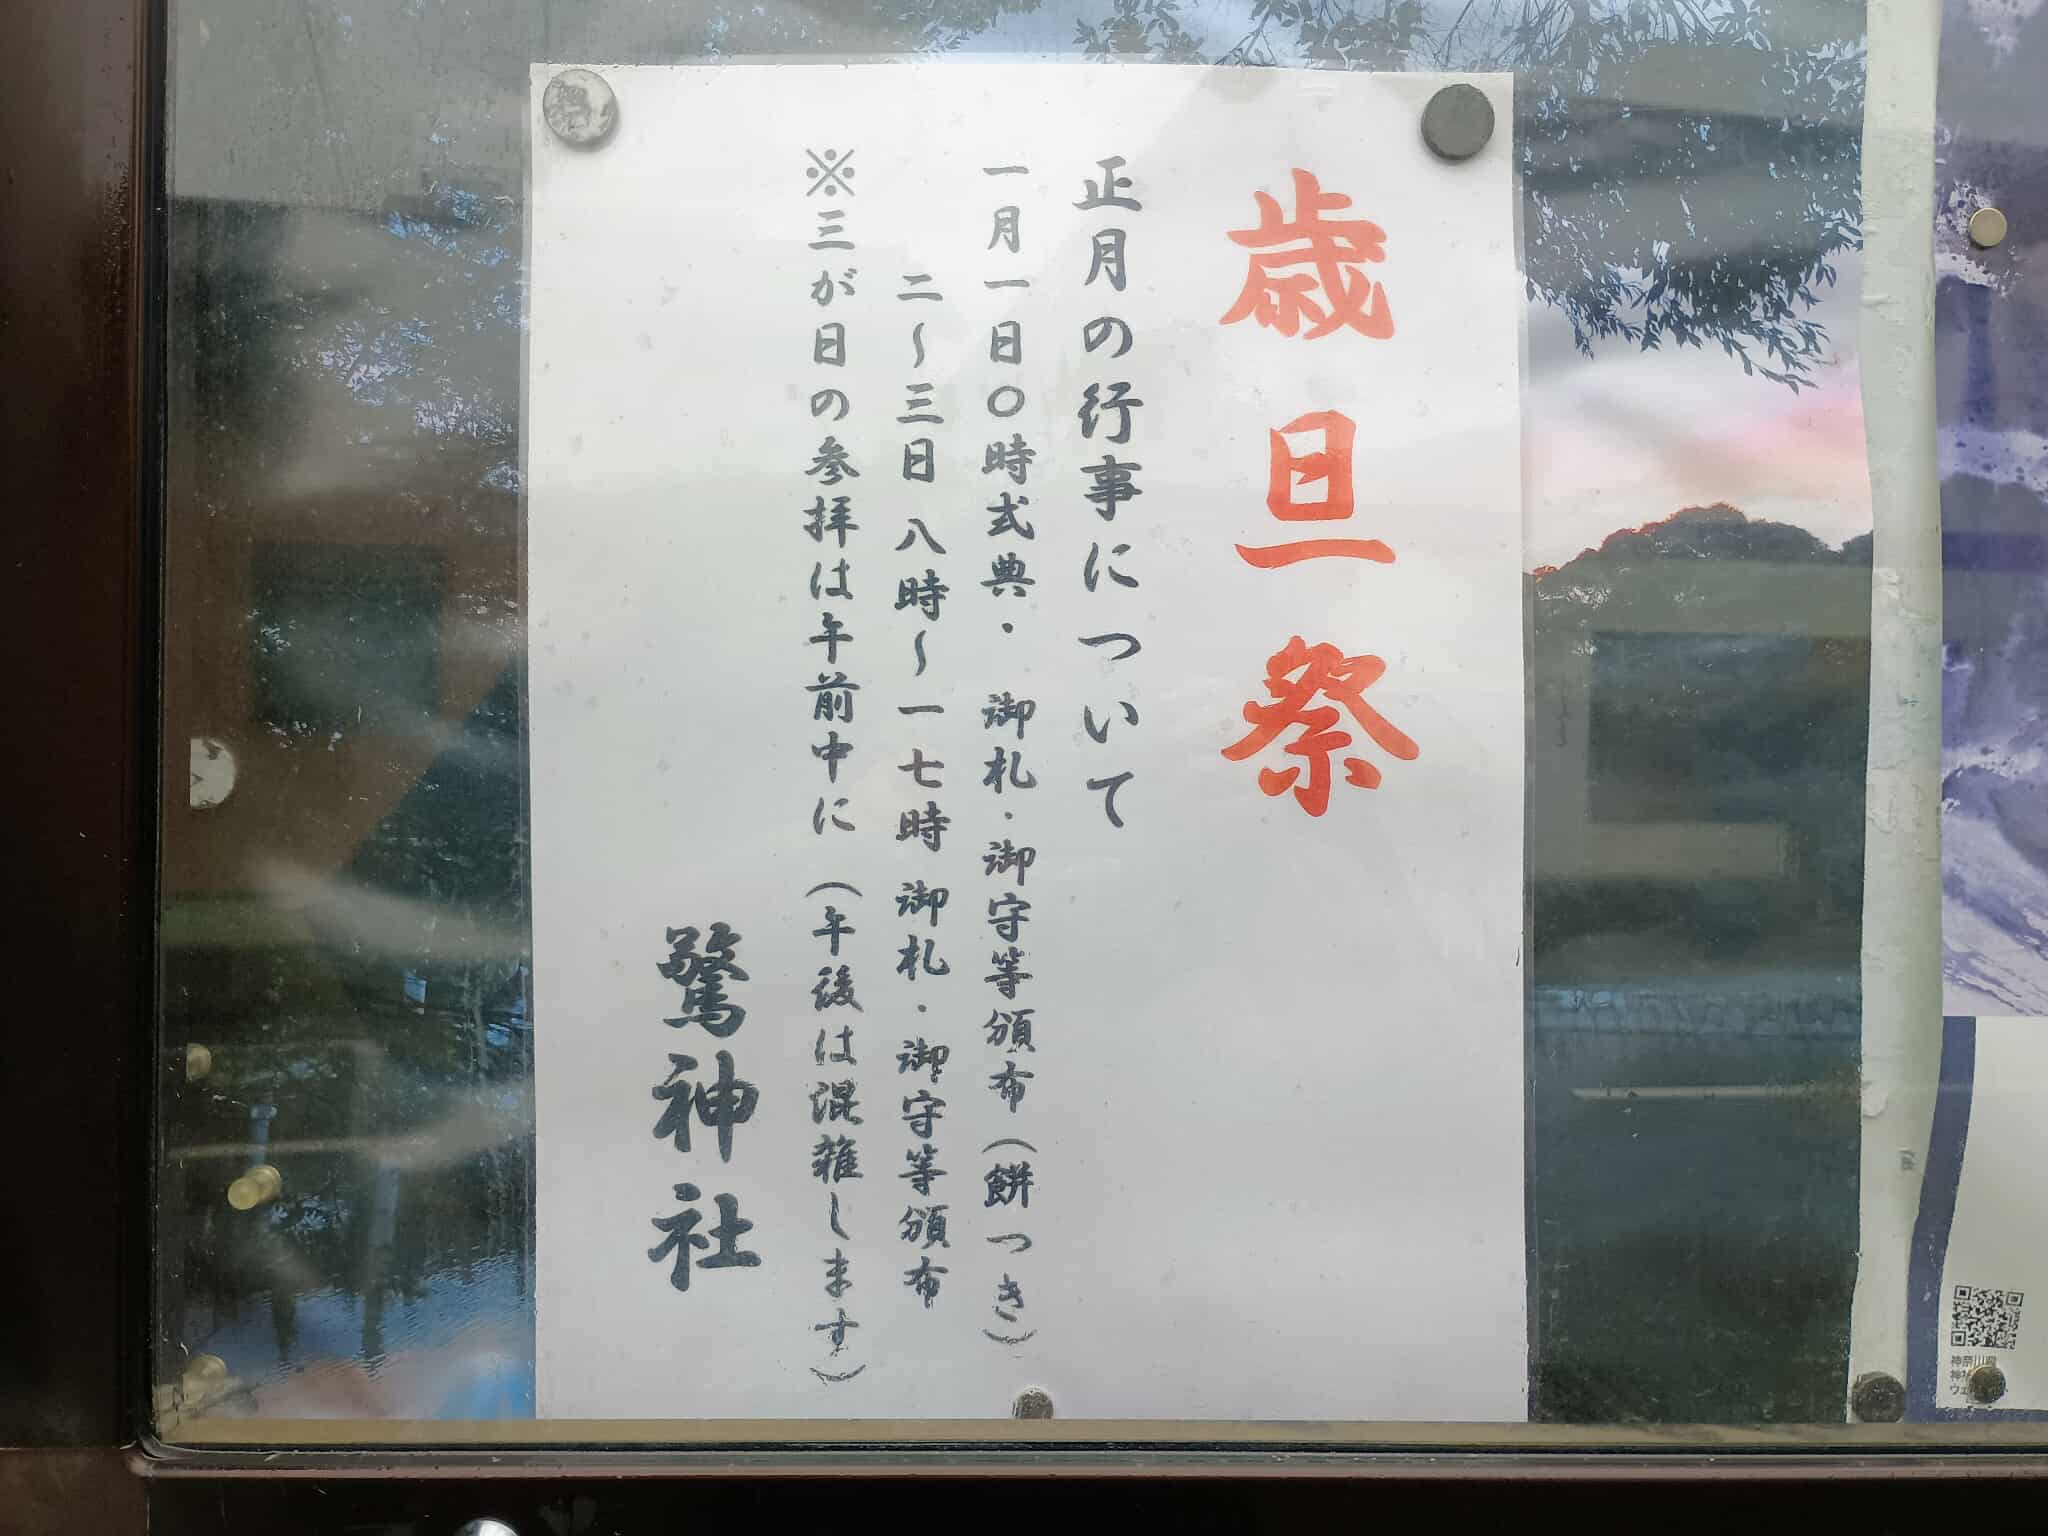 歳旦祭
正月の行事について
一月一日〇時式典・ 御札・御守等頒布（餅つき）
二～三日 八時～一七時 御札・御守等頒布
※三が日の参拝は午前中に（午後は混雑します）
驚神社
神奈川県